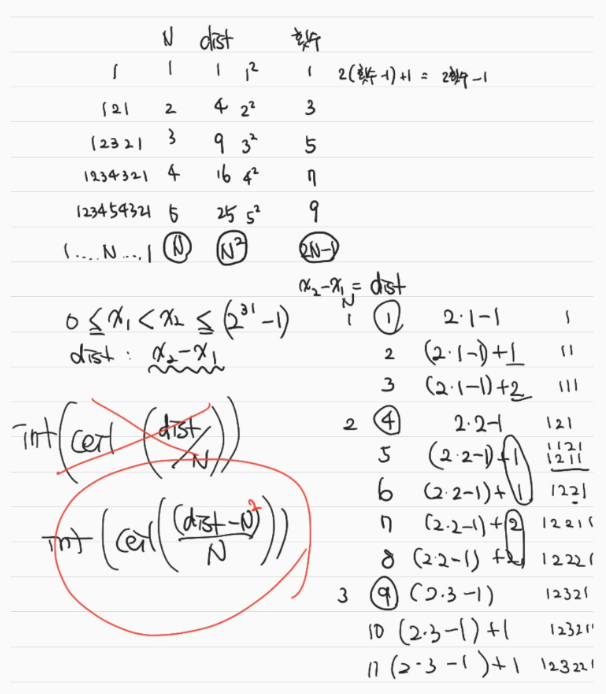 N dist 횟수
1 1 1 1² 1 2(횟수-1)+1 = 2횟수-1
121 2 4 2² 3
12321 3 9 3² 5
1234321 4 16 4² 7
123454321 5 25 5² 9
1....N....1 N N² 2N-1
x₂-x₁ = dist
0 ≤ x₁ < x₂ ≤ (2³¹-1)
dist : x₂-x₁
N
1 1 2·1-1 1
2 (2·1-1)+1 11
3 (2·1-1)+2 111
2 4 2·2-1 121
5 (2·2-1)+1 1121 1211
6 (2·2-1)+1 1221
7 (2·2-1)+2 12211
8 (2·2-1)+2 12221
3 9 (2·3-1) 12321
10 (2·3-1)+1 123211
11 (2·3-1)+1 123221
int(ceil(dist/N))
int(ceil((dist-N²)/N))